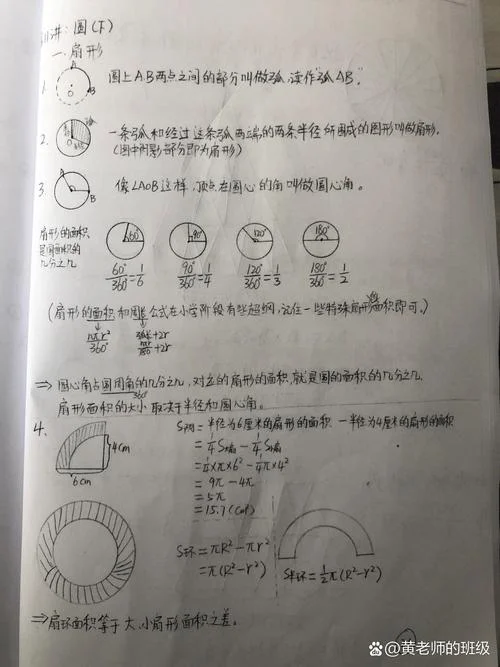 讲:圆(下)
一.扇形
1. A B O 圆上AB两点之间的部分叫做弧,读作"弧AB"。
2. 一条弧和经过这条弧两端的两条半径所围成的图形叫做扇形。
(图中阴影部分即为扇形)
3. A O B 像∠AOB这样,顶点在圆心的角叫做圆心角。
扇形的面积
是圆面积的
几分之几
60° 90° 120° 180°
60°/360°=1/6 90°/360°=1/4 120°/360°=1/3 180°/360°=1/2
(扇形的面积和周长公式在小学阶段有些超纲,记住一些特殊扇形面积即可。)
nπr²/360° 弧长+2r
nπr/180+2r
⇒圆心角占圆周角的几分之几,对应的扇形的面积,就是圆的面积的几分之几.
360°
扇形面积的大小取决于半径和圆心角。
4. S阴=半径为6厘米的扇形的面积-半径为4厘米的扇形的面积
4cm
6cm
=1/4S大扇-1/4S小扇
=1/4×π×6²-1/4π×4²
=9π-4π
=5π
=15.7(cm²)
S环=πR²-πr²
=π(R²-r²)
S半环=1/2π(R²-r²)
⇒扇环面积等于大、小扇形面积之差。
黄老师的班级